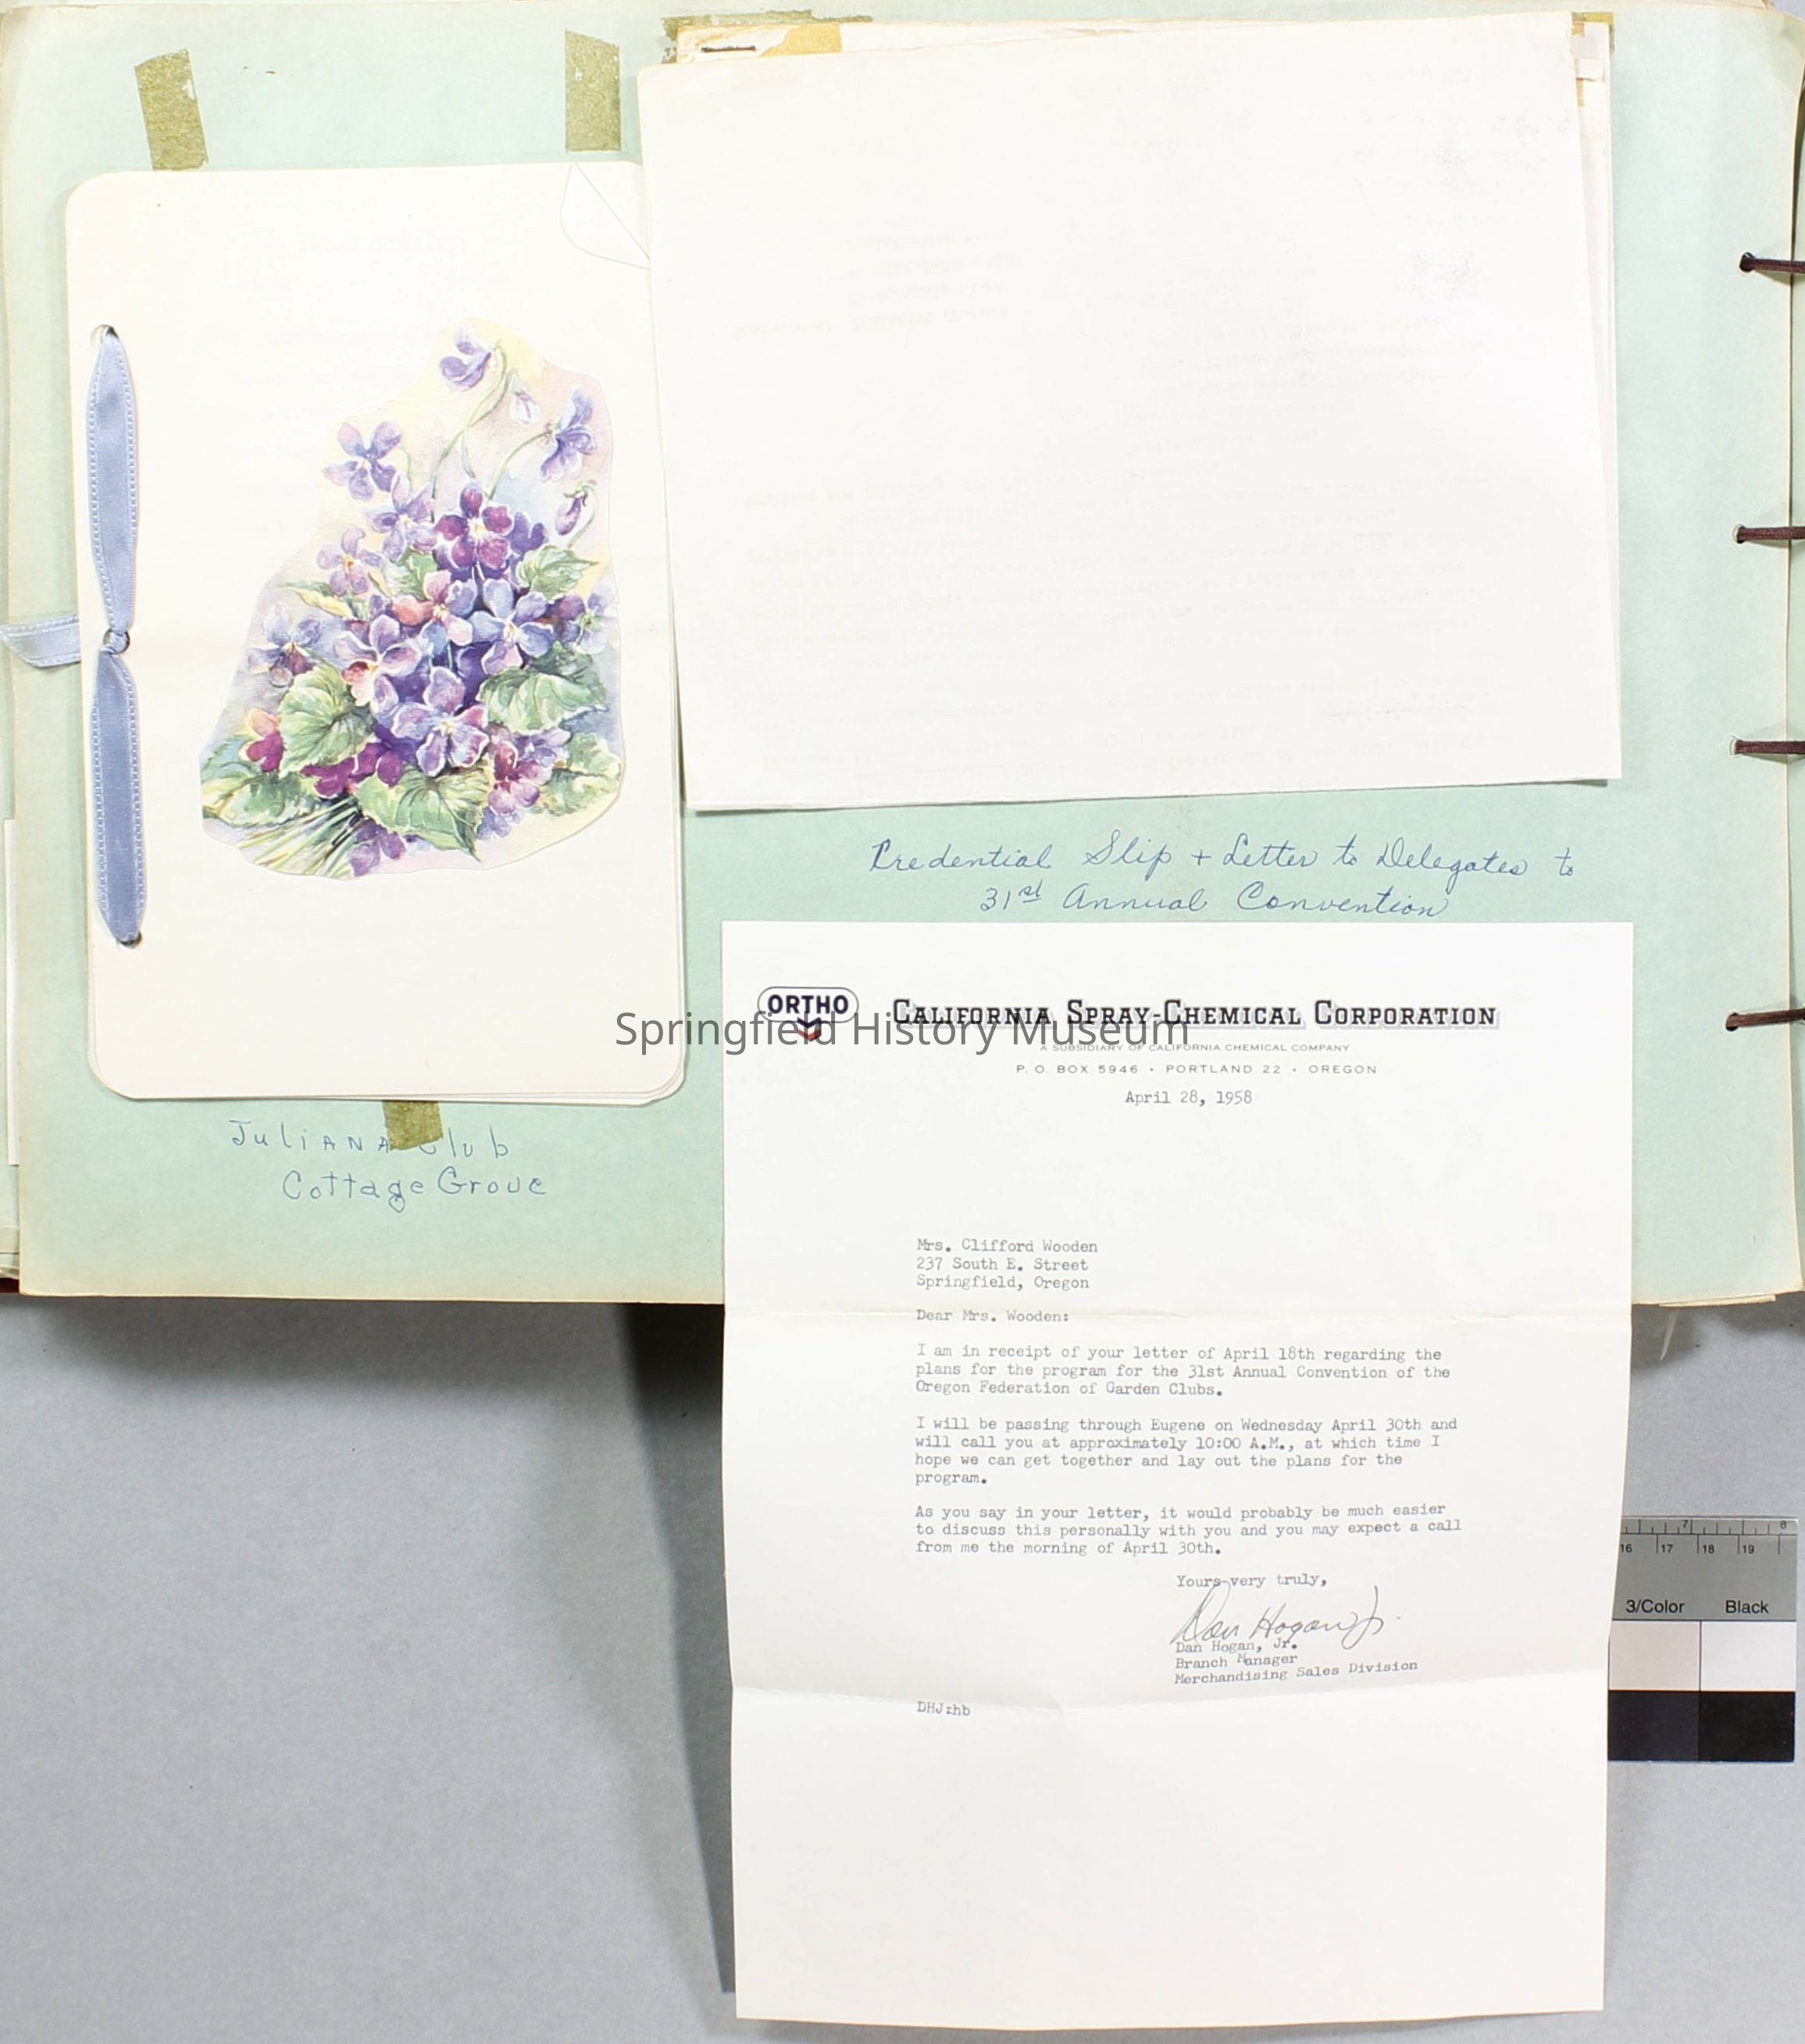 Juliana Club
Cottage Grove
Credential Slip + Letter to Delegates to
31st Annual Convention
ORTHO
CALIFORNIA SPRAY-CHEMICAL CORPORATION
Springfield History Museum
A SUBSIDIARY OF CALIFORNIA CHEMICAL COMPANY
P. O. BOX 5946 • PORTLAND 22 • OREGON
April 28, 1958
Mrs. Clifford Wooden
237 South E. Street
Springfield, Oregon
Dear Mrs. Wooden:
I am in receipt of your letter of April 18th regarding the
plans for the program for the 31st Annual Convention of the
Oregon Federation of Garden Clubs.
I will be passing through Eugene on Wednesday April 30th and
will call you at approximately 10:00 A.M., at which time I
hope we can get together and lay out the plans for the
program.
As you say in your letter, it would probably be much easier
to discuss this personally with you and you may expect a call
from me the morning of April 30th.
Yours very truly,
Dan Hogan Jr.
Dan Hogan, Jr.
Branch Manager
Merchandising Sales Division
DHJ:hb
7 8
16 17 18 19
3/Color Black